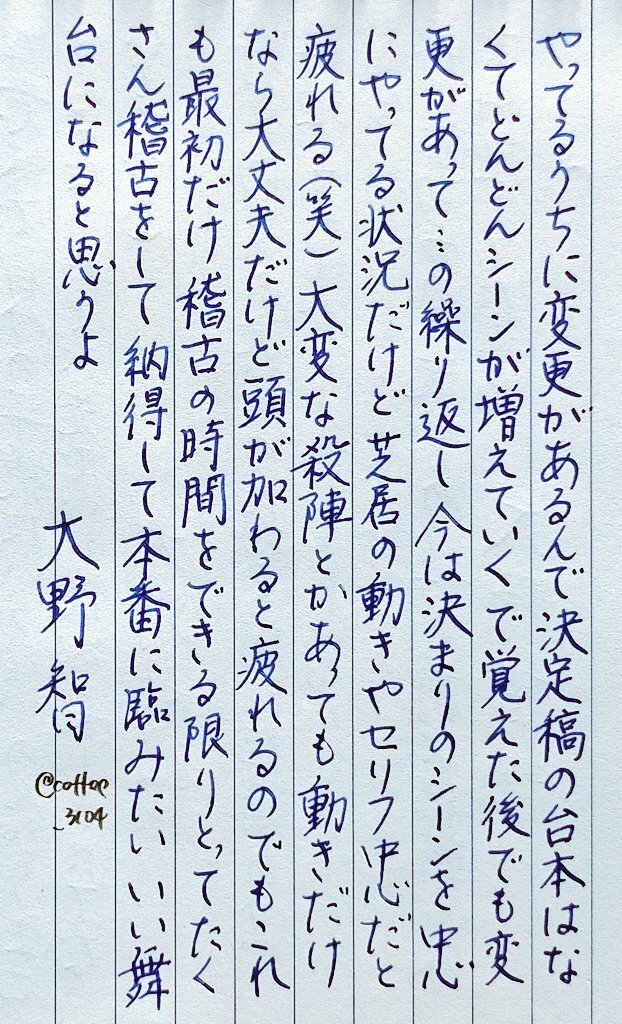 やってるうちに変更があるんで決定稿の台本はな
くてどんどんシーンが増えていくで覚えた後でも変
更があって…の繰り返し 今は決まりのシーンを中心
にやってる状況だけど 芝居の動きやセリフ中心だと
疲れる(笑) 大変な殺陣とかあっても動きだけ
なら大丈夫だけど頭が加わると疲れるのでもこれ
も最初だけ 稽古の時間をできる限りとってたく
さん稽古をして 納得して本番に臨みたい いい舞
台になると思うよ
大野 智
@coffee
_3104